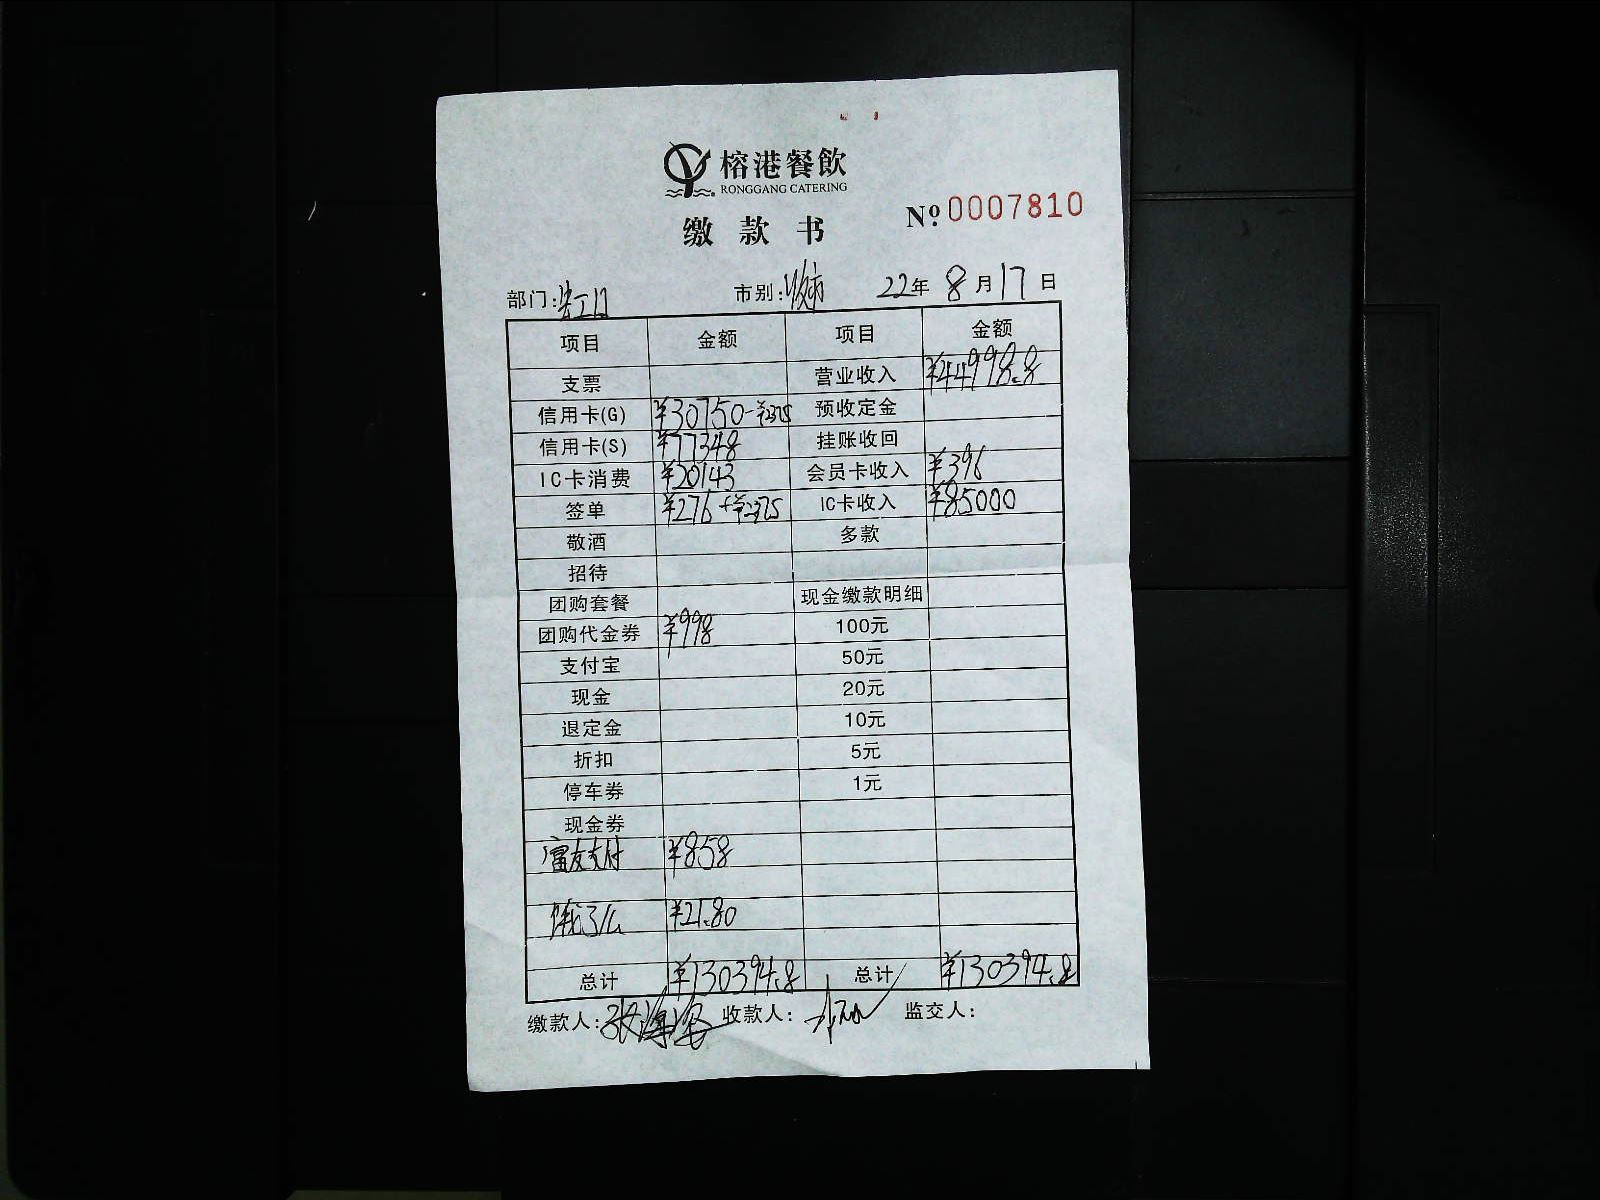 榕港餐飲
RONGGANG CATERING
缴款书
No. 0007810
部门: 市别: 22年 8月17日
项目 金额 项目 金额
支票 营业收入 ¥44998.8
信用卡(G) ¥30750-¥2375 预收定金
信用卡(S) ¥77348 挂账收回
IC卡消费 ¥20143 会员卡收入 ¥396
签单 ¥276+¥2375 IC卡收入 ¥85000
敬酒 多款
招待
团购套餐 现金缴款明细
团购代金券 ¥998 100元
支付宝 50元
现金 20元
退定金 10元
折扣 5元
停车券 1元
现金券
富友支付 ¥858
饿了么 ¥21.80
总计 ¥130394.8 总计 ¥130394.8
缴款人: 收款人: 监交人: